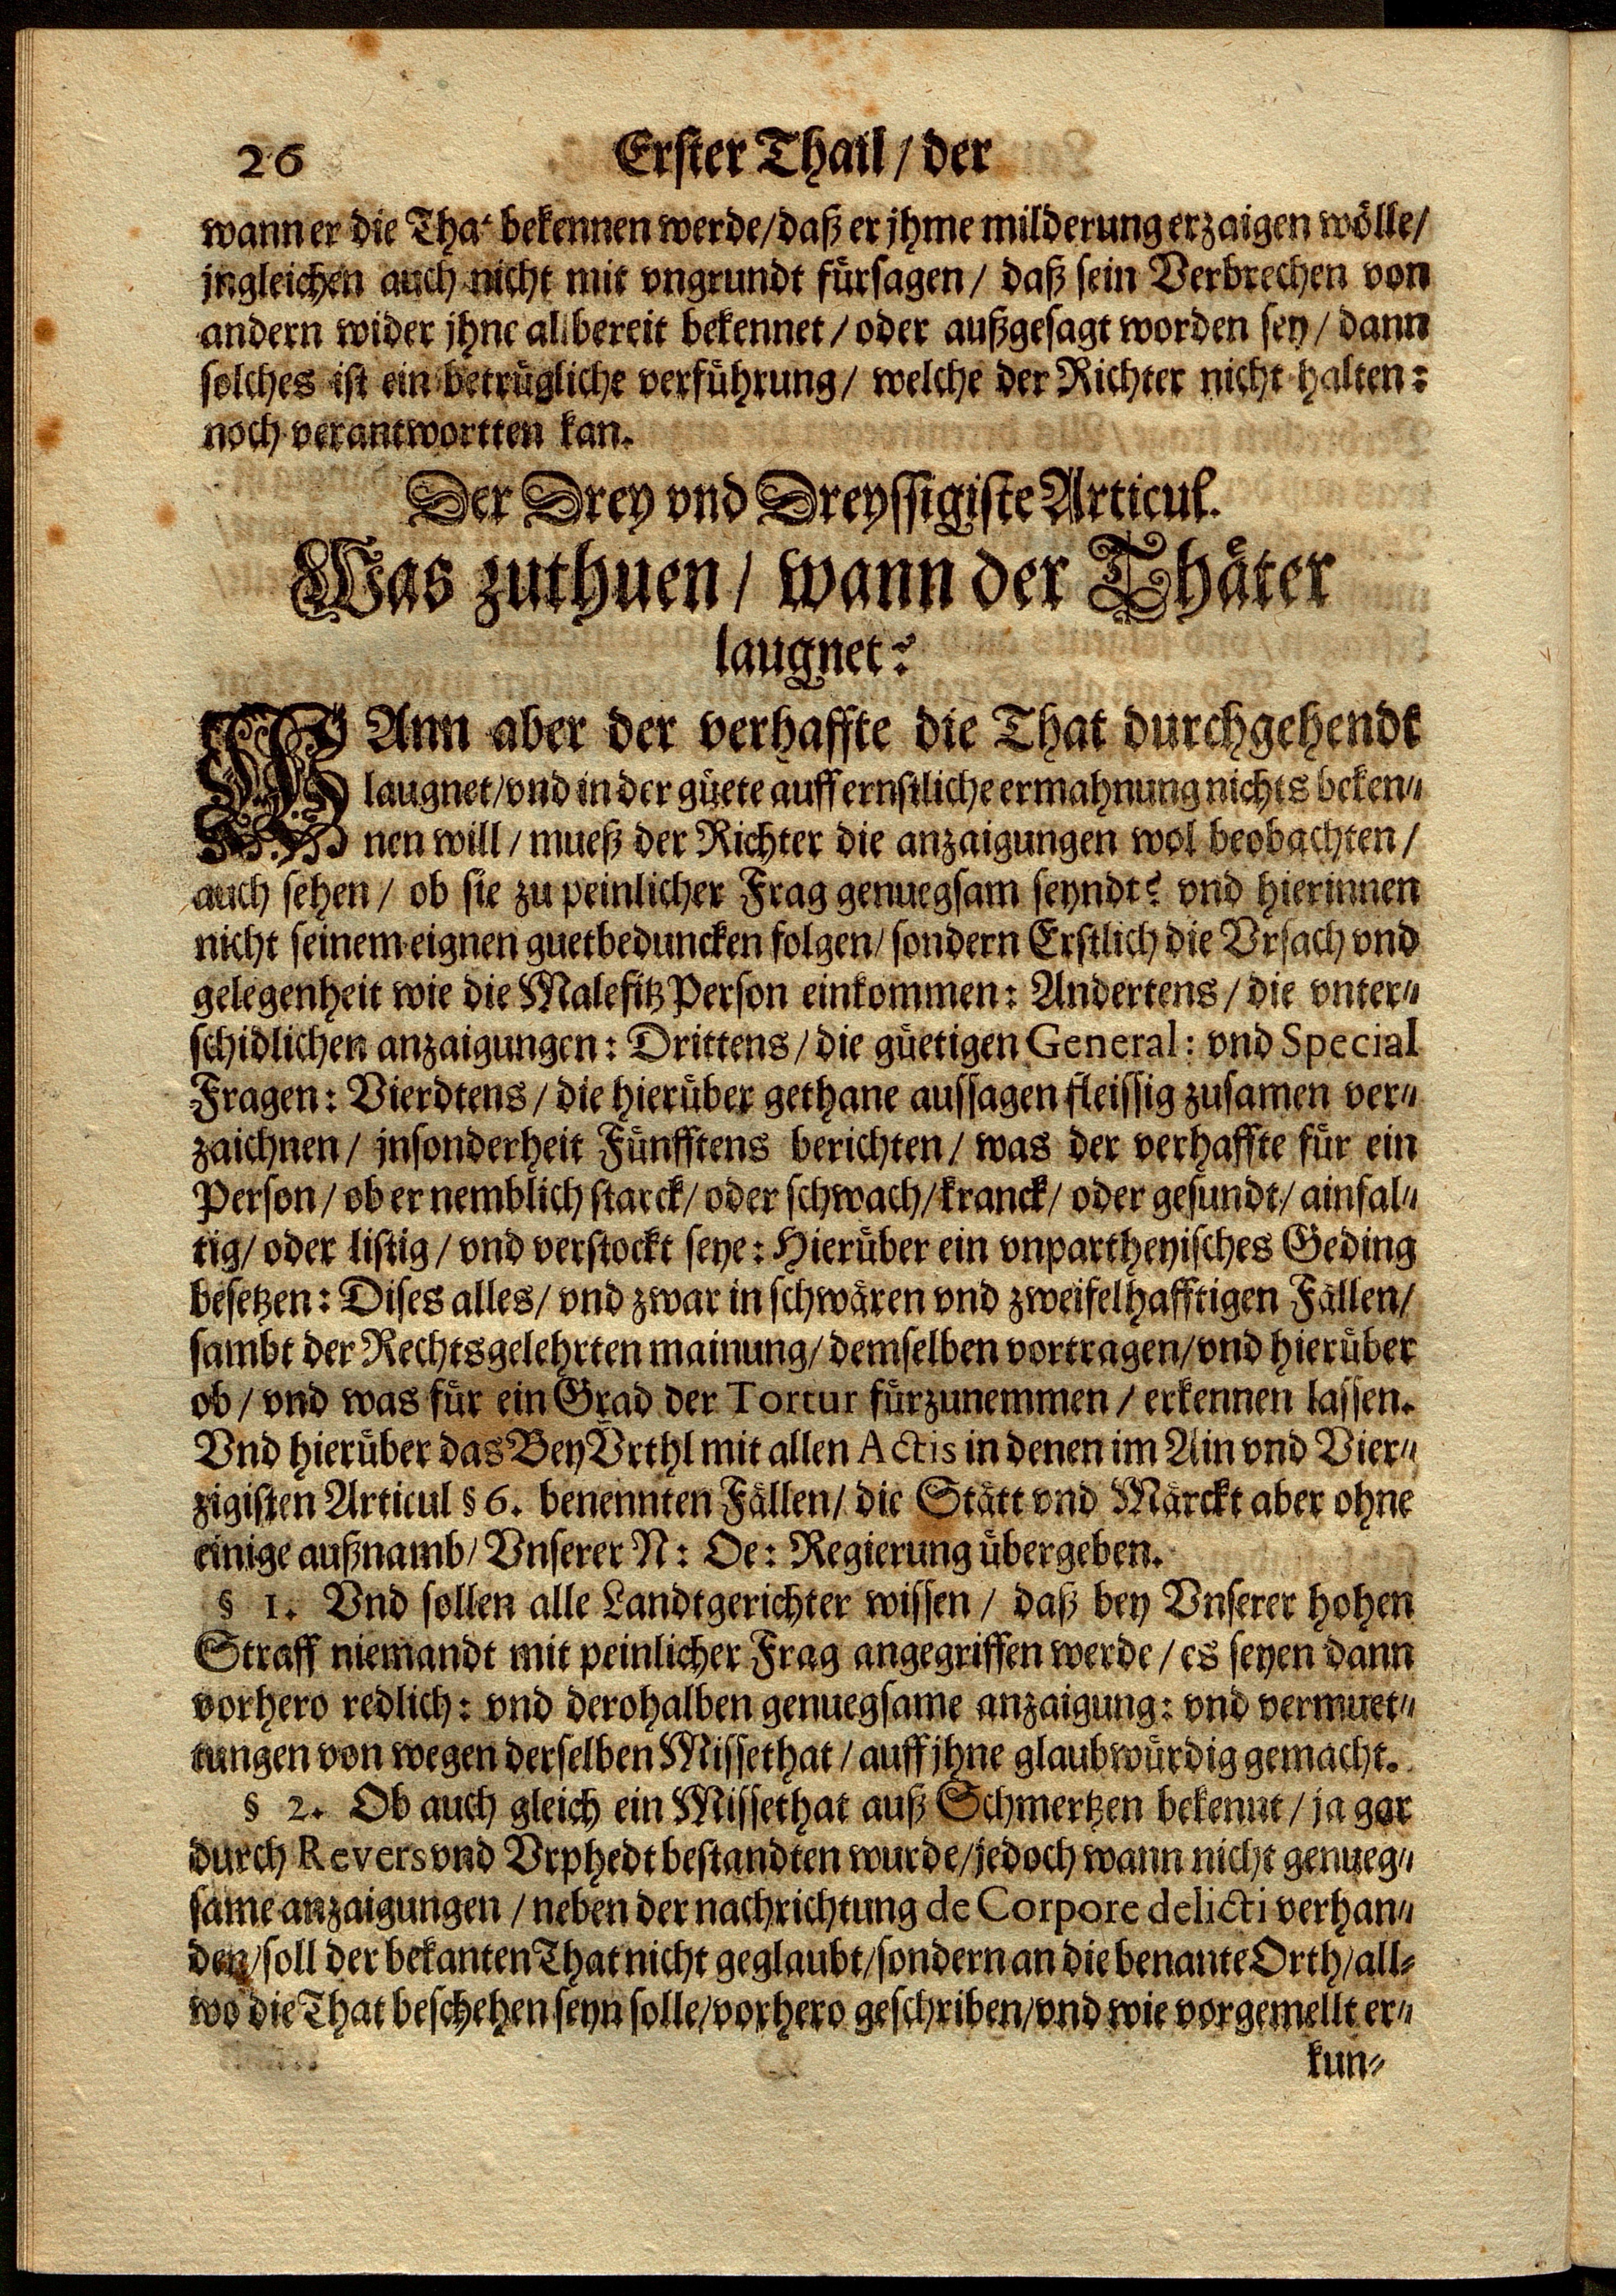 26 Erster Thail / der
wann er die That bekennen werde / daß er jhme milderung erzaigen wölle /
jngleichen auch nicht mit vngrundt fürsagen / daß sein Verbrechen von
andern wider jhne allbereit bekennet / oder außgesagt worden sey / dann
solches ist ein betrügliche verführung / welche der Richter nicht halten:
noch verantwortten kan.
Der Drey vnd Dreyssigiste Articul.
Was zuthuen / wann der Thäter
laugnet?
WAnn aber der verhaffte die That durchgehendt
laugnet / vnd in der güete auff ernstliche ermahnung nichts beken⸗
nen will / mueß der Richter die anzaigungen wol beobachten /
auch sehen / ob sie zu peinlicher Frag genuegsam seyndt? vnd hierinnen
nicht seinem eignen guetbeduncken folgen / sondern Erstlich die Vrsach vnd
gelegenheit wie die Malefitz Person einkommen: Andertens / die vnter⸗
schidlichen anzaigungen: Drittens / die güetigen General: vnd Special
Fragen: Vierdtens / die hierüber gethane aussagen fleissig zusamen ver⸗
zaichnen / jnsonderheit Fünfftens berichten / was der verhaffte für ein
Person / ob er nemblich starck / oder schwach / kranck / oder gesundt / ainfal⸗
tig / oder listig / vnd verstockt seye: Hierüber ein vnpartheyisches Geding
besetzen: Dises alles / vnd zwar in schwären vnd zweifelhafftigen Fällen /
sambt der Rechtsgelehrten mainung / demselben vortragen / vnd hierüber
ob / vnd was für ein Grad der Tortur fürzunemmen / erkennen lassen.
Vnd hierüber das Bey Vrthl mit allen Actis in denen im Ain vnd Vier⸗
zigisten Articul § 6. benennten Fällen / die Stätt vnd Märckt aber ohne
einige außnamb / Vnserer N: Oe: Regierung übergeben.
§ 1. Vnd sollen alle Landtgerichter wissen / daß bey Vnserer hohen
Straff niemandt mit peinlicher Frag angegriffen werde / es seyen dann
vorhero redlich: vnd derohalben genuegsame anzaigung: vnd vermuet⸗
tungen von wegen derselben Missethat / auff jhne glaubwürdig gemacht.
§ 2. Ob auch gleich ein Missethat auß Schmertzen bekennt / ja gar
durch Revers vnd Vrphedt bestandten wurde / jedoch wann nicht genueg⸗
same anzaigungen / neben der nachrichtung de Corpore delicti verhan⸗
den / soll der bekanten That nicht geglaubt / sondern an die benante Orth / all⸗
wo die That beschehen seyn solle / vorhero geschriben / vnd wie vorgemellt er⸗
kun⸗